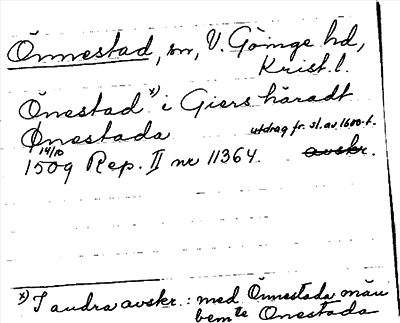 Önnestad, sn, V. Göinge hd,
Krist. l.
Önestad x) i Giers häradt
Ønestada utdrag fr. sl. av 1600-t.
14/10 1509 Rep. II nr 11364. avskr.
x) I andra avskr.: med Önnestada män
bemte Onestada